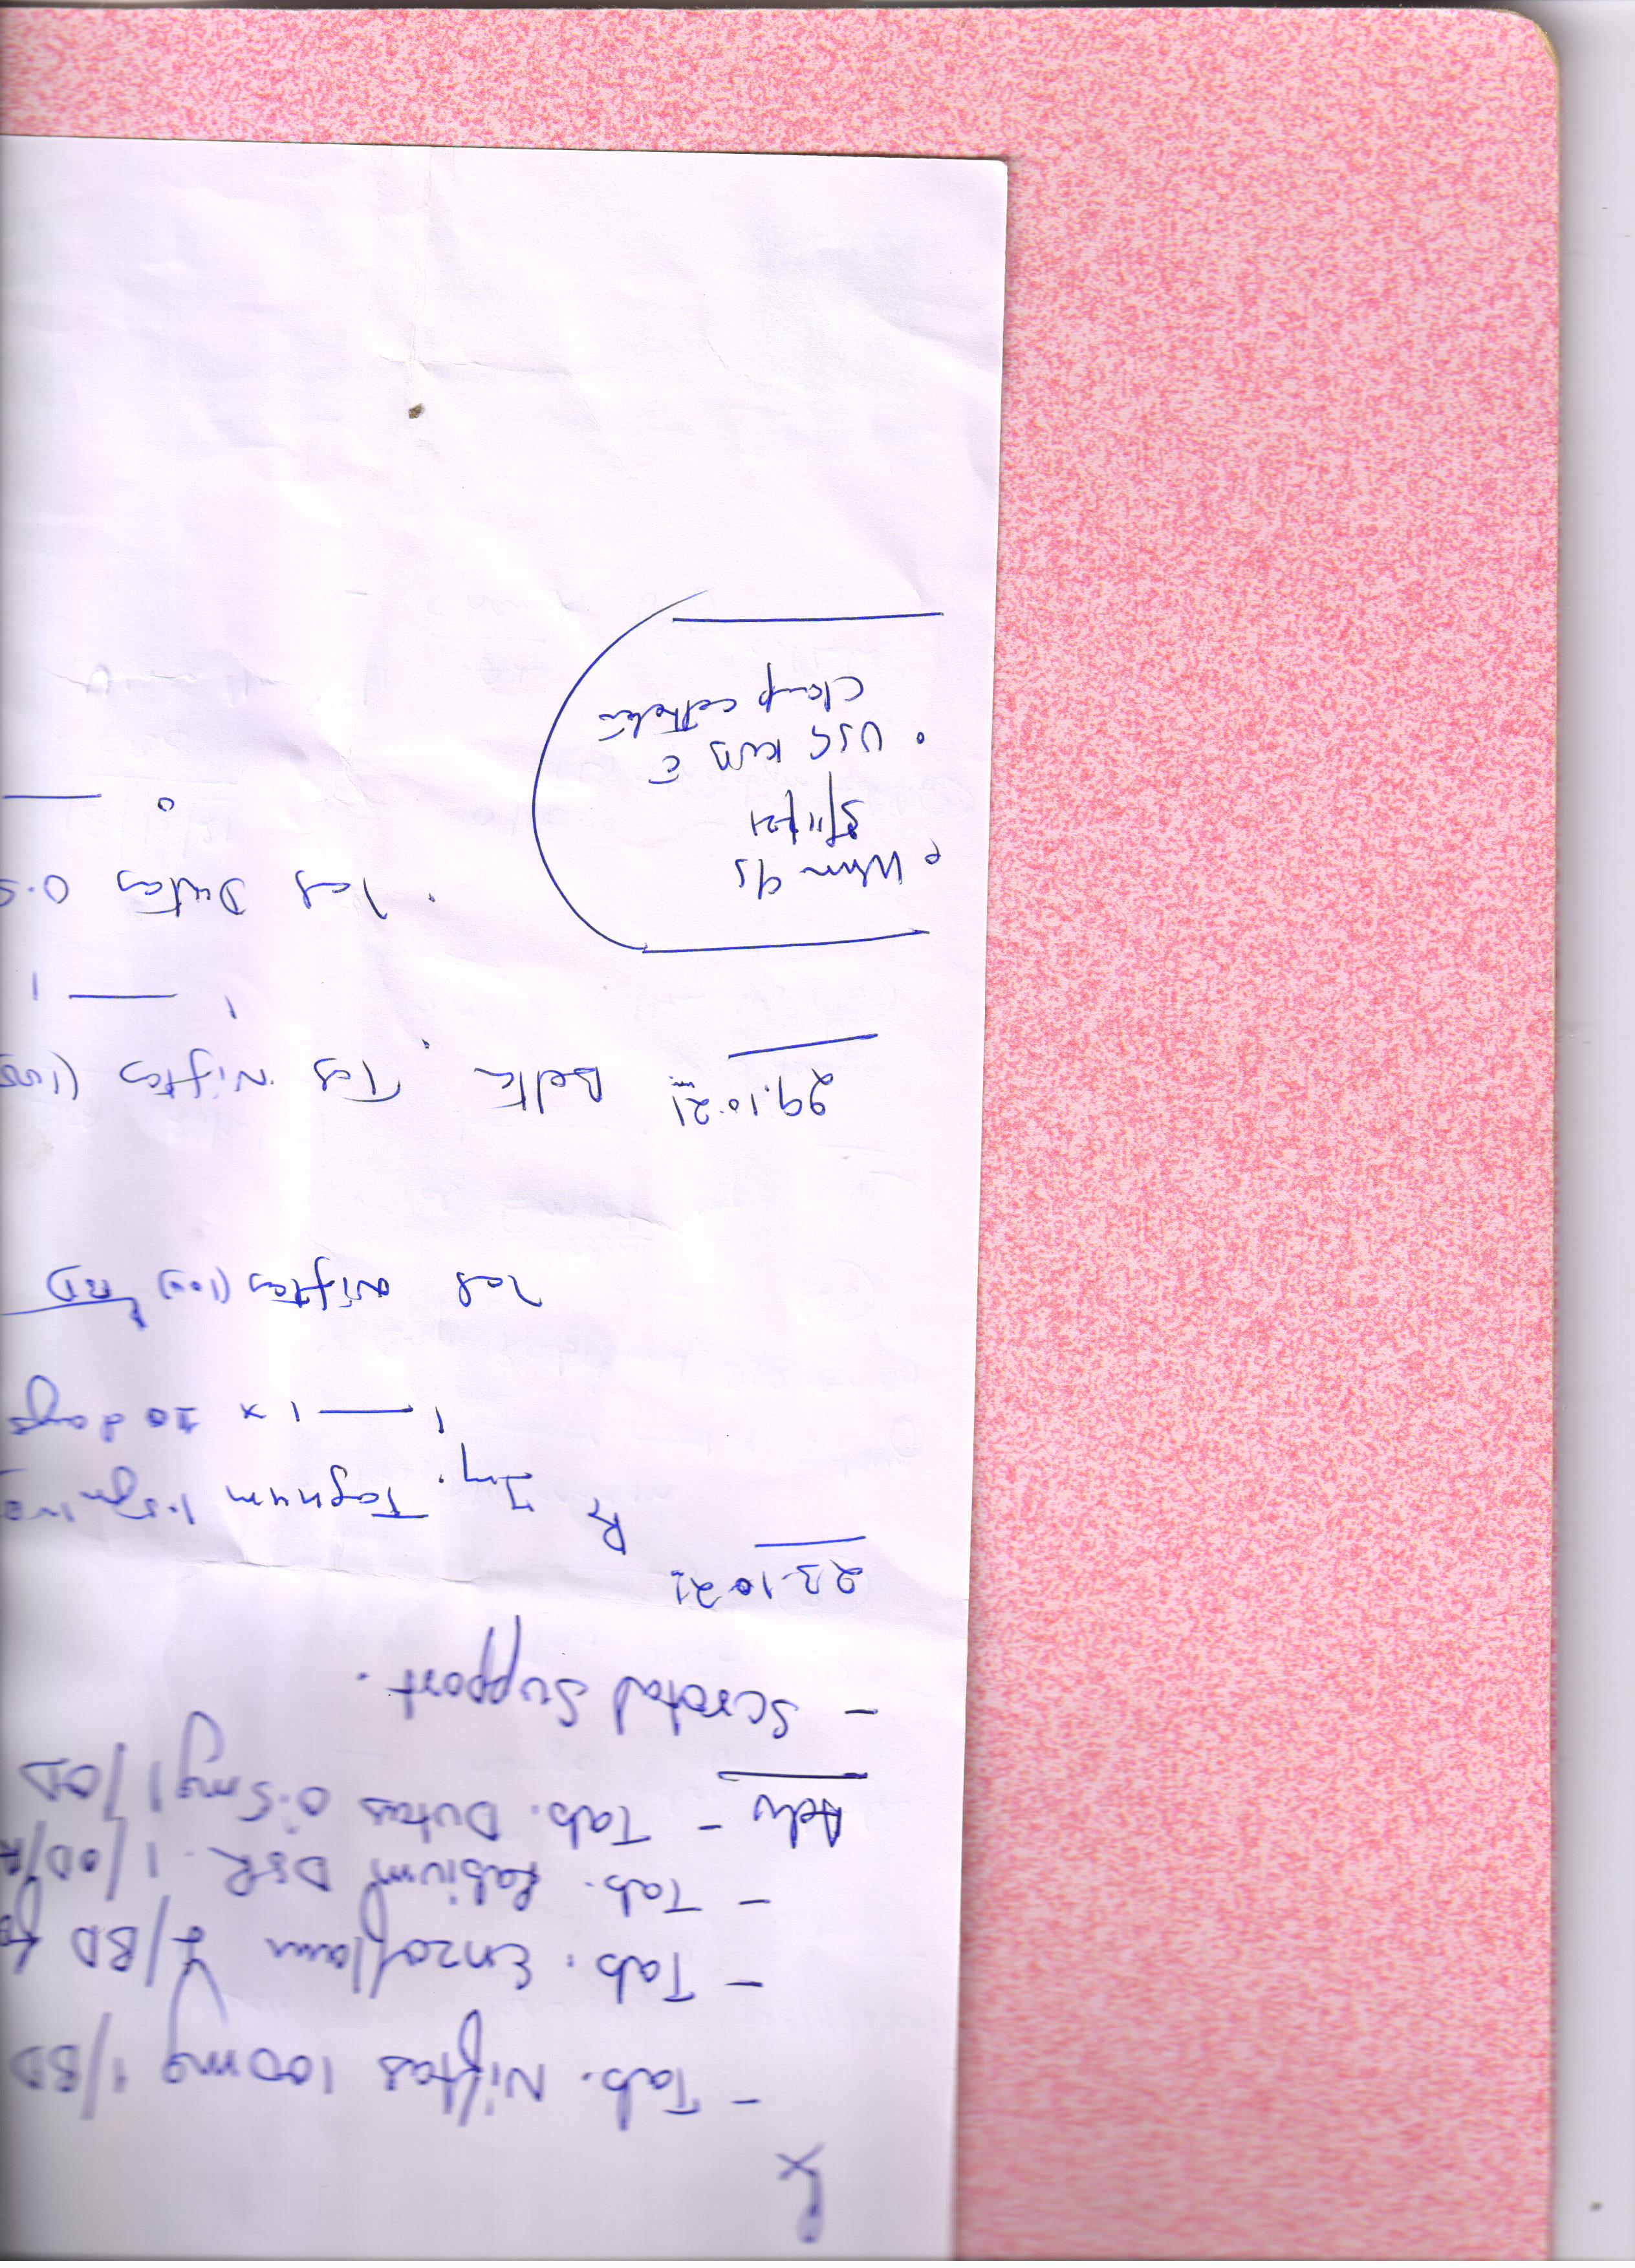 Rx
- Tab. Niftas 100mg 1/BD
- Tab. Enzoflam 1/BD
- Tab. Rabium DSR. 1/OD/
Adv - Tab. Dutas 0.5mg 1/OD
- Scrotal Support.
23.10.21
R Inj. Tognum 1.5gm
1 — 1 x 10 days
Tab Niftas (100) BD
29.10.21 Tab Niftas (100
1 — 1
• When
5/11/21
• Tab Dutas 0.5
• USG KUB c̄
0 —
Clamp catheter